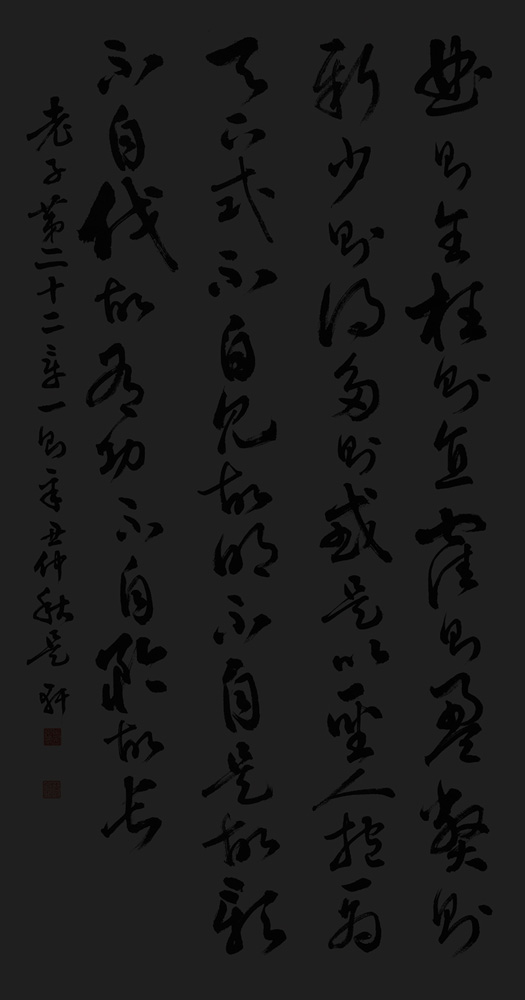 曲則全枉則直窪則盈獘則
新少則得多則惑是以聖人抱一為
天下式不自見故明不自是故彰
不自伐故有功不自矜故長
老子第二十二章一則辛丑仲秋是軒